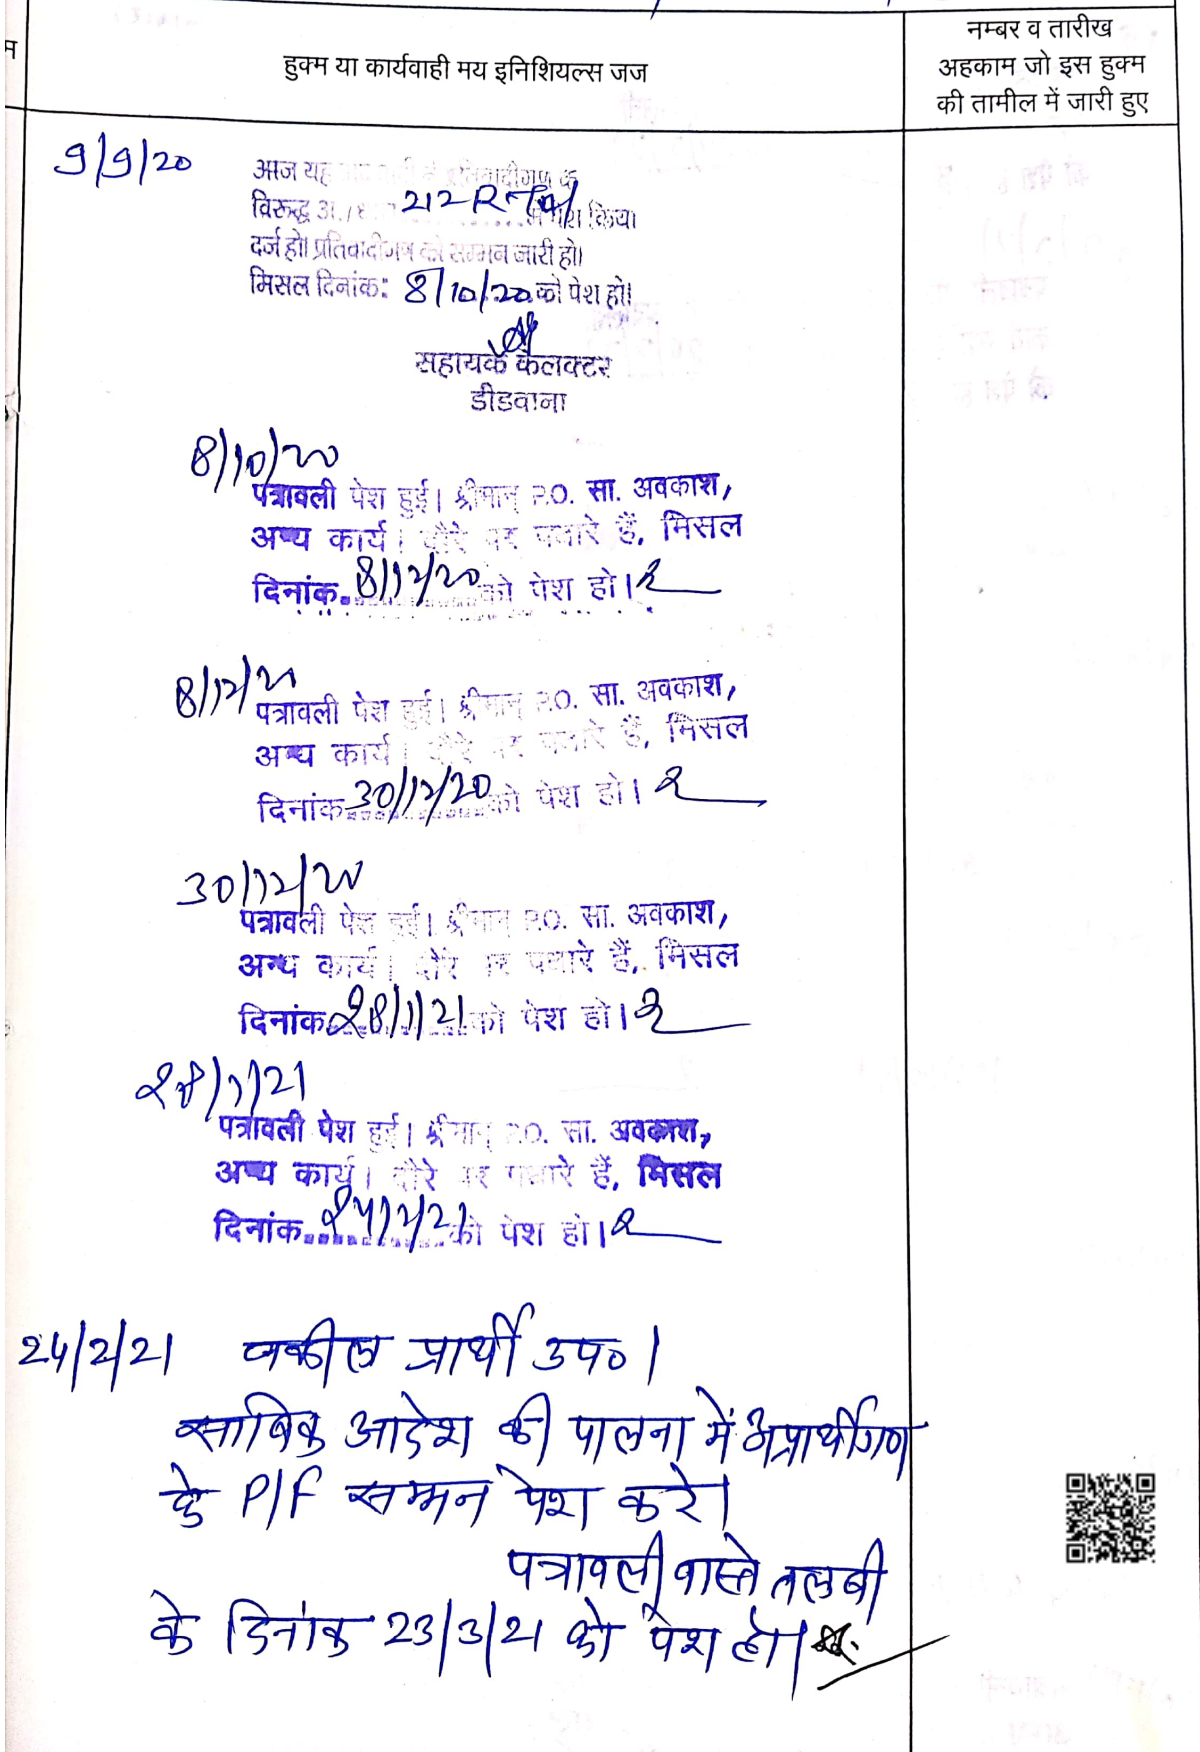 हुक्म या कार्यवाही मय इनिशियल्स जज
नम्बर व तारीख
अहकाम जो इस हुक्म
की तामील में जारी हुए
9/9/20
आज यह प्रतिवादीगण के
विरूद्ध 212 R.T.A पेश किया
दर्ज हो। प्रतिवादीगण को सम्मन जारी हो।
मिसल दिनांक: 8/10/20 को पेश हो।
सहायक कलक्टर
डीडवाना
8/10/20
पत्रावली पेश हुई। श्रीमान् P.O. सा. अवकाश,
अन्य कार्य। दौरे पर पधारे हैं, मिसल
दिनांक 8/12/20 को पेश हो।
8/12/20
पत्रावली पेश हुई। श्रीमान् P.O. सा. अवकाश,
अन्य कार्य। दौरे पर पधारे हैं, मिसल
दिनांक 30/12/20 को पेश हो।
30/12/20
पत्रावली पेश हुई। श्रीमान् P.O. सा. अवकाश,
अन्य कार्य। दौरे पर पधारे हैं, मिसल
दिनांक 28/1/21 को पेश हो।
28/1/21
पत्रावली पेश हुई। श्रीमान् P.O. सा. अवकाश,
अन्य कार्य। दौरे पर पधारे हैं, मिसल
दिनांक 24/2/21 को पेश हो।
24/2/21 वकील प्रार्थी उप०।
साबिक आदेश की पालना में अप्रार्थीगण
के P/F सम्मन पेश करे।
पत्रावली वास्ते तलबी
के दिनांक 23/3/21 को पेश हो।